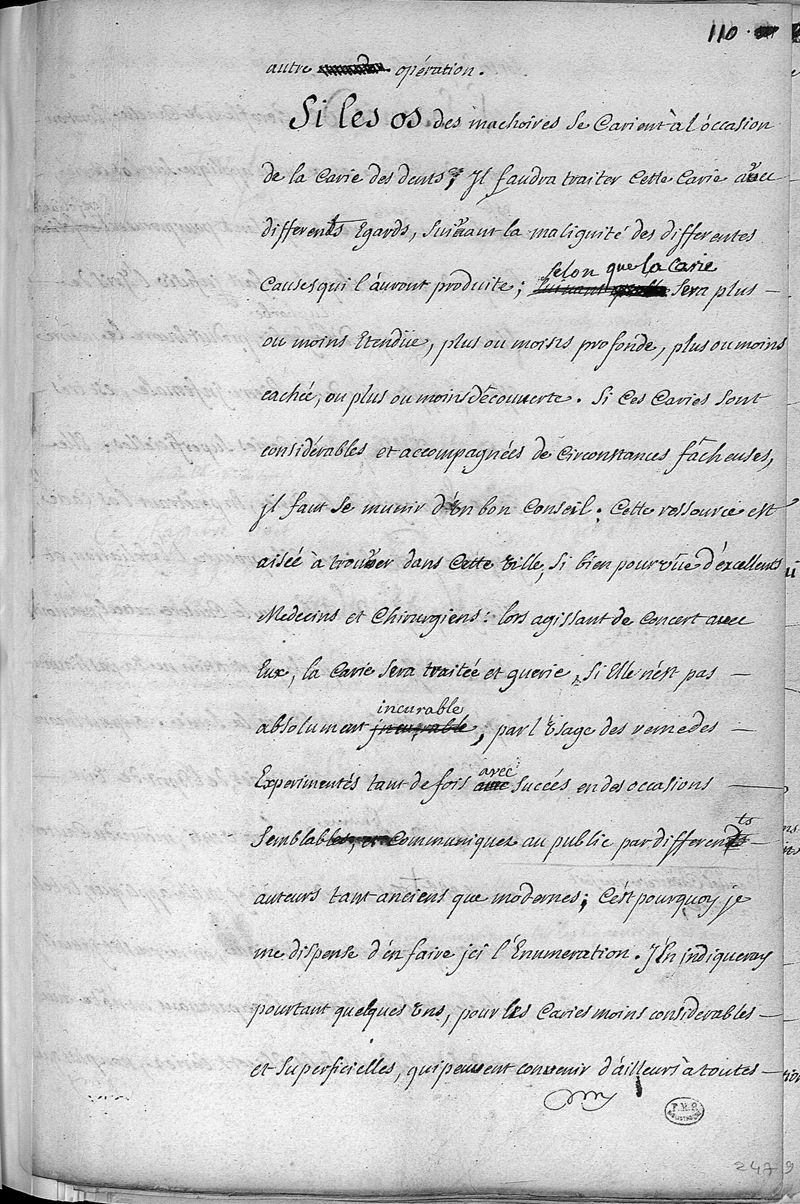 110.
autre opération.
Si les os des machoires se Carient à l'óccasion
de la Carie des dents; Il faudra traiter Cette Carie avec
differents Egards, Suivant la malignité des differentes
Causes qui l'áuront produite; selon que la Carie Sera plus —
ou moins Etendüe, plus ou moins profonde, plus ou moins
cachée, ou plus ou moins découverte. Si Ces Caries Sont
considérables et accompagnées de Circonstances fâcheuses,
jl faut Se munir d'Ún bon Conseil. Cette ressource est
aisée à trouver dans Cette Ville, Si bien pourvûe d'éxcellents
Medecins et Chirurgiens: lors agissant de Concert avec
Eux, la Carie Sera traitée et guerie, Si Elle n'ést pas —
incurable
absolument jncurable, par l'Usage des remedes —
Experimentés tant de fois avec Succés en des occasions —
Semblables, et Communiquez au public par differents —
auteurs tant anciens que modernes; C'ést pourquoy je
me dispense d'én faire jci l'Enumeration. J'En jndiqueray
pourtant quelques Uns, pour les Caries moins considerables —
et Superficielles, qui peuvent convenir d'áilleurs à toutes —
F.M.P.
247